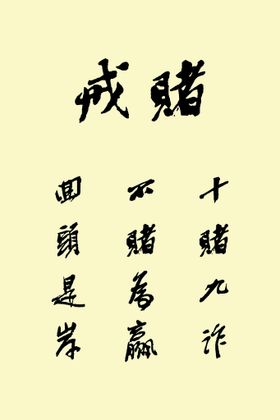 戒賭
十賭九詐
不賭為贏
回頭是岸